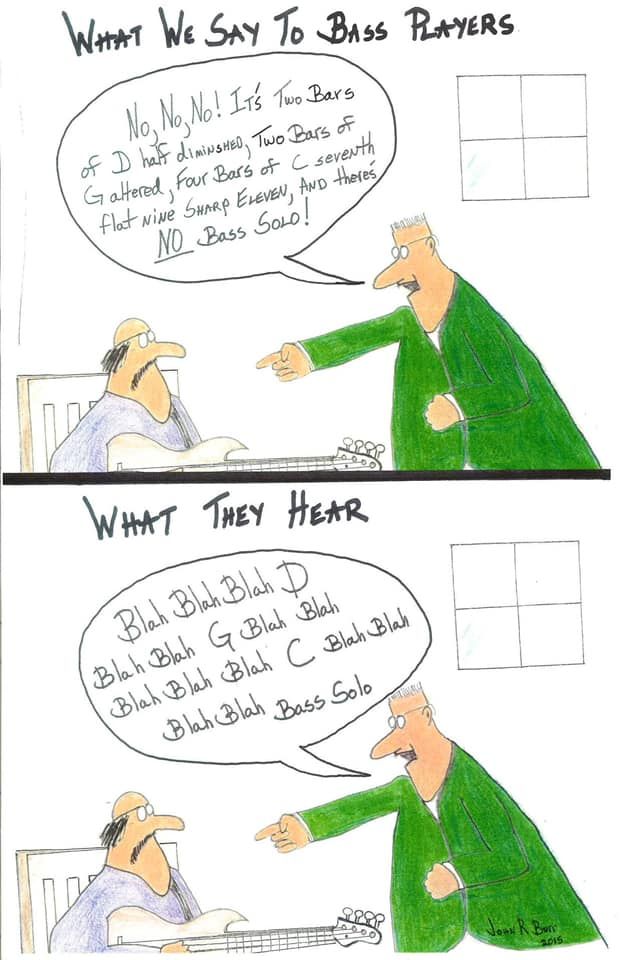 WHAT WE SAY TO BASS PLAYERS
No, No, No! IT'S Two Bars
of D half diminshed, Two Bars of
G altered, Four Bars of C seventh
flat NINE SHARP ELEVEN, AND there's
NO Bass Solo!
WHAT THEY HEAR
Blah Blah Blah D
Blah Blah G Blah Blah
Blah Blah Blah C Blah Blah
Blah Blah Bass Solo
JOHN R Burr
2015